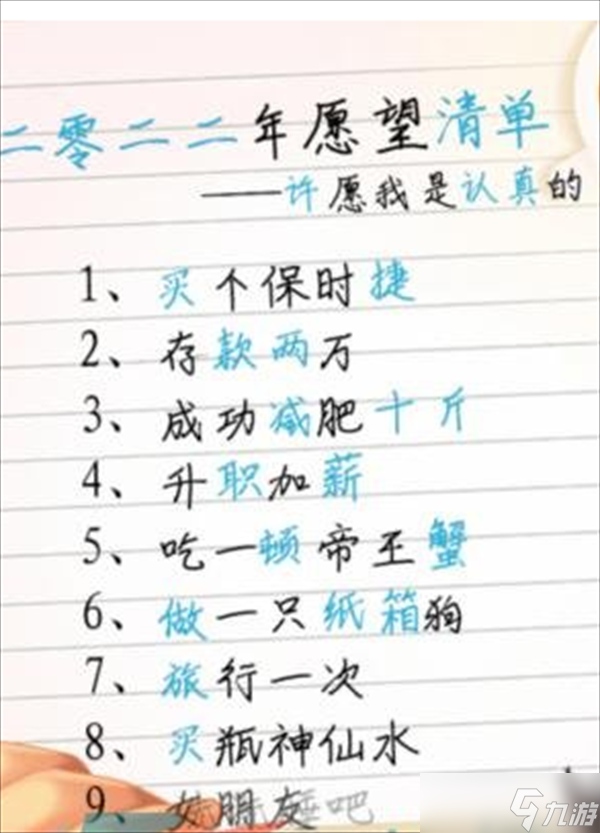 二零二二年愿望清单
——许愿我是认真的
1、买个保时捷
2、存款两万
3、成功减肥十斤
4、升职加薪
5、吃一顿帝王蟹
6、做一只纸箱狗
7、旅行一次
8、买瓶神仙水
9、女朋友 吧
九游